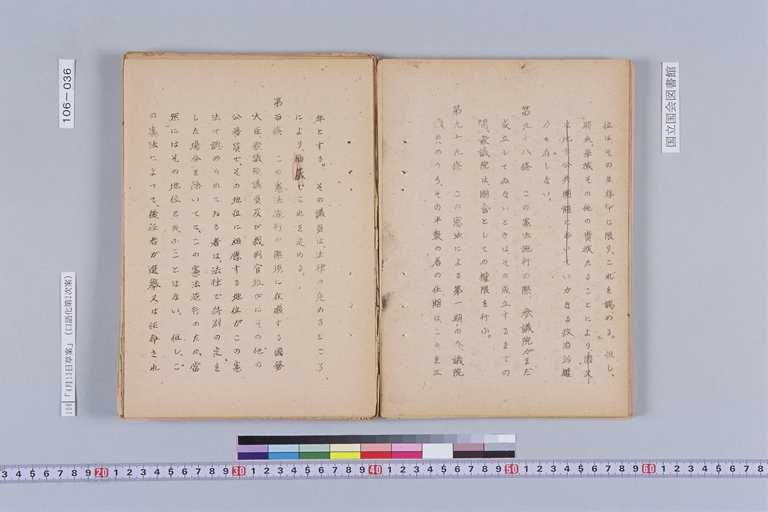 国立国会図書館
位は、その生存中に限り、これを認める。但し、
将来、華族その他の貴族たることにより、国又
は地方公共団體においていかなる政治的權
力も有しない。
第九十八條 この憲法施行の際、参議院がまだ
成立してゐないときはその成立するまでの
間、衆議院は國會としての權限を行ふ。
第九十九條 この憲法による第一期の参議院
議員のうち、その半数の者の任期は、これを三
年とする。その議員は、法律の定めるところ
により、これを定める。
第百條 この憲法施行の際現に在職する國務
大臣衆議院議員及び裁判官並びにその他の
公務員で、その地位に相應する地位がこの憲
法で認められてゐる者は、法律で特別の定を
した場合を除いては、この憲法施行のため、當
然にはその地位を失ふことはない。但し、こ
の憲法によつて、後任者が選擧又は任命され
106-036
106 「4月13日草案」(口語化第2次案)
3 4 5 6 7 8 9 20 1 2 3 4 5 6 7 8 9 30 1 2 3 4 5 6 7 8 9 40 1 2 3 4 5 6 7 8 9 50 1 2 3 4 5 6 7 8 9 60 1 2 3 4 5 6 7 8